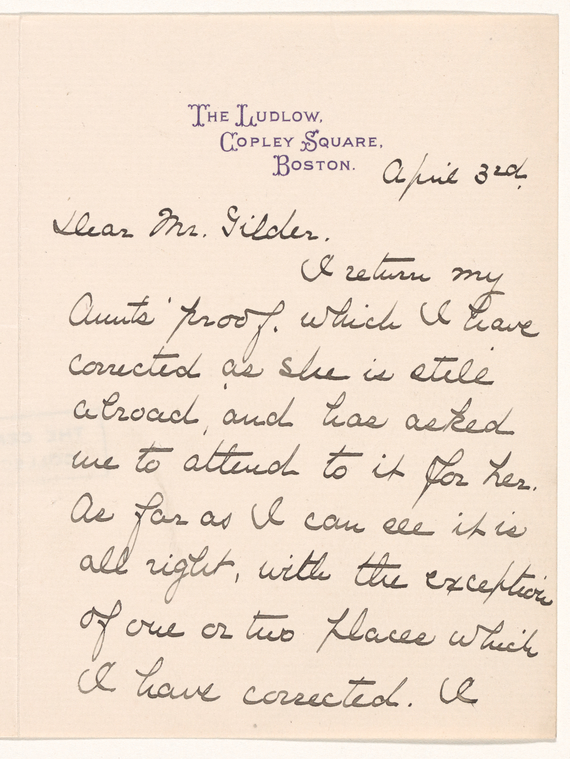 The Ludlow,
Copley Square,
Boston.
April 3rd.
Dear Mr. Gilder.
I return my
Aunts' proof. which I have
corrected as she is still
abroad, and has asked
me to attend to it for her.
As far as I can see it is
all right, with the exception
of one or two places which
I have corrected. I